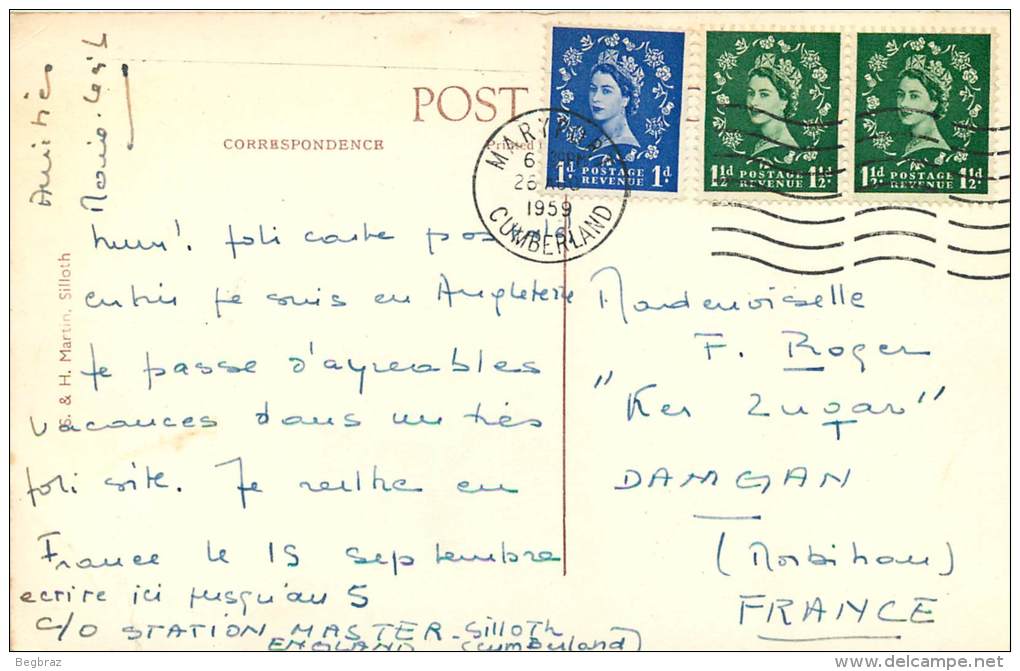 Amitiés
Marie-Le
POST
CORRESPONDENCE
Printed
S. & H. Martin, Silloth
1d. POSTAGE REVENUE 1d.
1½d POSTAGE REVENUE 1½d.
1½d POSTAGE REVENUE 1½d.
MARYPORT
6
26 AUG
1959
CUMBERLAND
hum! joli carte pos tale
entrée je suis en Angleterre
Je passe d'agreables
vacances dans un très
joli site. Je rentre en
France le 15 septembre
ecrire ici jusqu'au 5
C/O STATION MASTER - Silloth
ENGLAND (Cumberland)
Mademoiselle
F. Roger
"Ker Zugar"
DAMGAN
(Morbihan)
FRANCE
Begbraz
delcampe.net